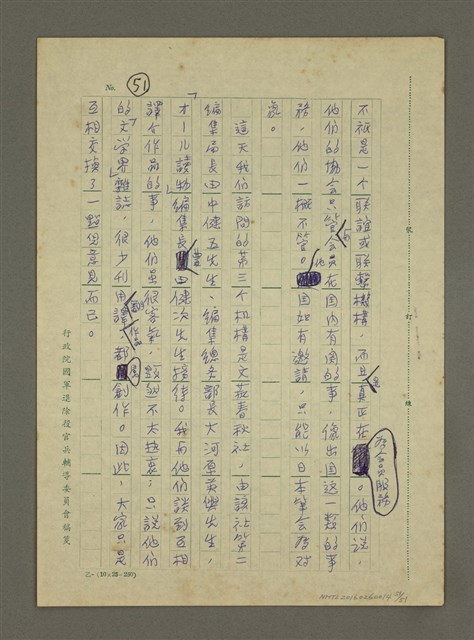 No. 51
不祇是一个联誼或联繫機構,而且是真正在為会員服務。他们說,
他们的協会只管会員在国内有関的事,像出国这一類的事
務,他们一概不管。他国如有邀請,只能以日本筆会为对
象。
這天我们訪問的第三个机構是文芸春秋社,由該社第二
編集局長田中健五先生、編集總务部長大河原英與先生,
「オール讀物」編集長豊田健次先生接待。我与他们談到互相
譯介作品的事,他们虽很客氣,毅然不太起衷;只說他们
的「文学界」雜誌,很少利用翻譯作品,都是創作。因此,大家只是
互相交換了一點但意見而已。
行政院國軍退除役官兵輔導委員會稿箋
乙-(10×25-250)
裝 訂 線